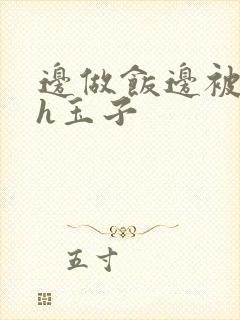 邊做飯邊被
h玉子
五寸